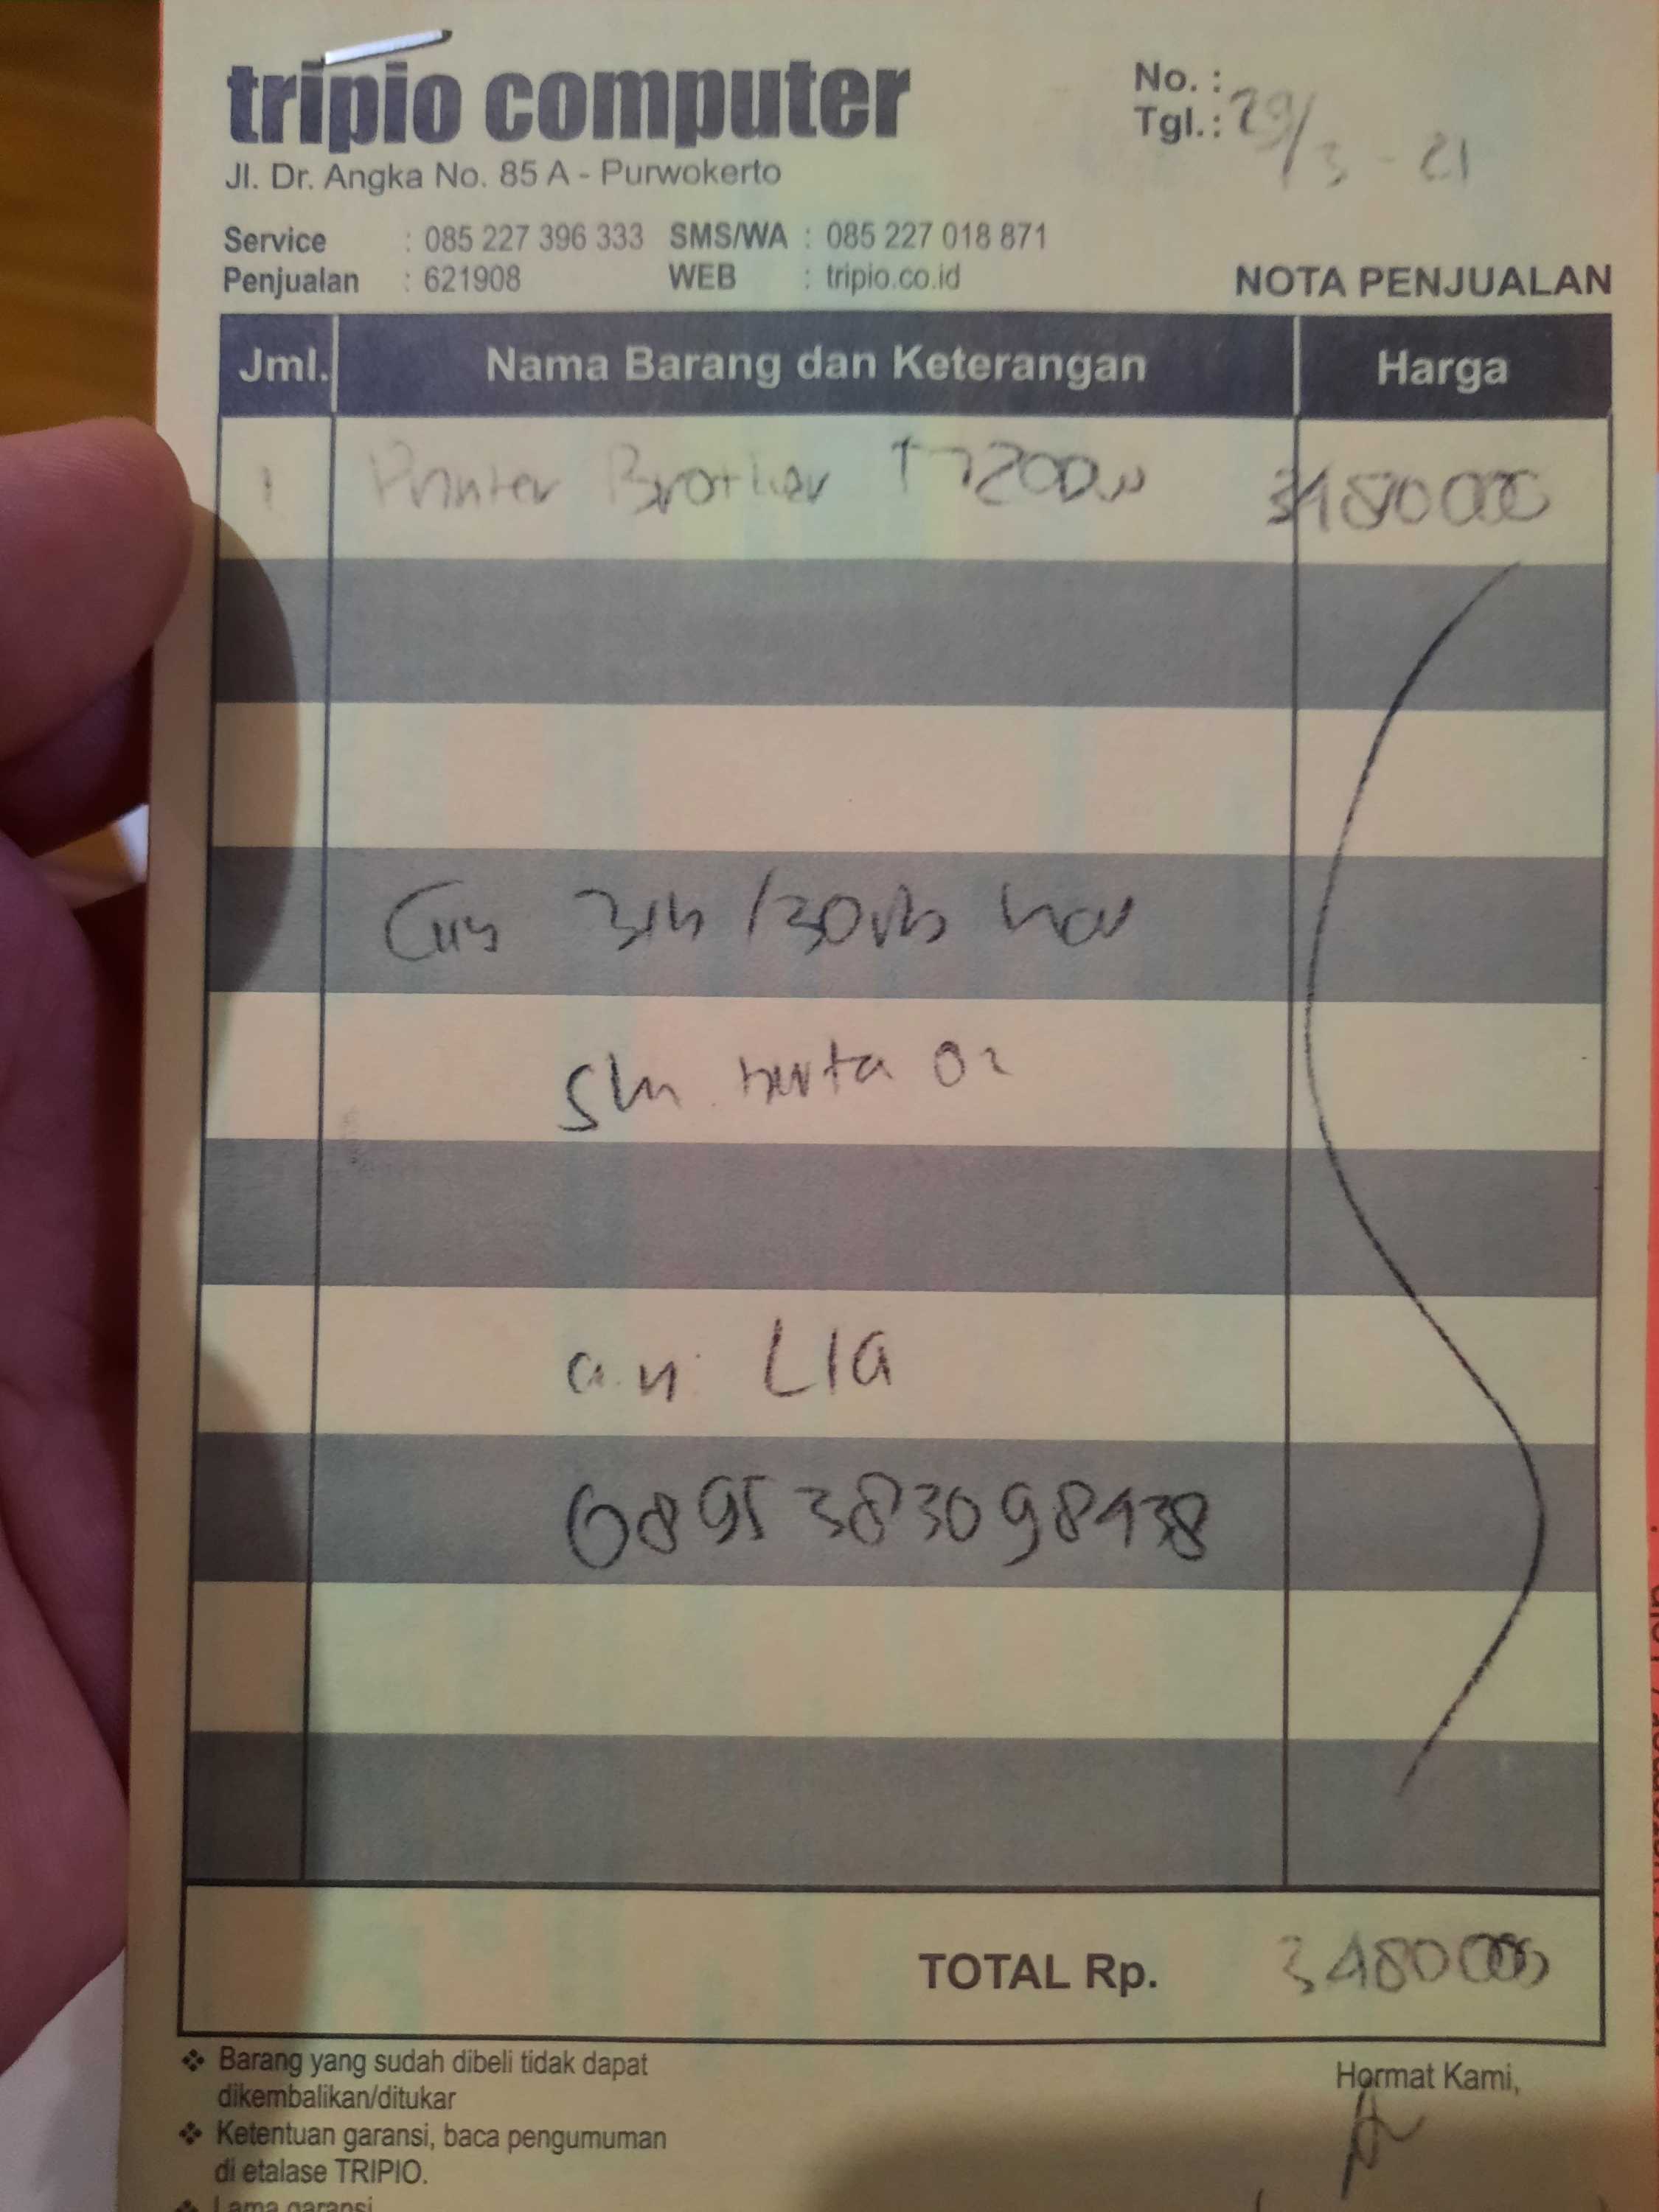 tripio computer
Jl. Dr. Angka No. 85 A - Purwokerto
No. :
Tgl. : 29/3 - 21
Service : 085 227 396 333 SMS/WA : 085 227 018 871
Penjualan : 621908 WEB : tripio.co.id
NOTA PENJUALAN
Jml. Nama Barang dan Keterangan Harga
1 Printer Brother T720DW 3480000
3th /30rb
a.n. LIA
0895383098438
TOTAL Rp. 3480000
❖ Barang yang sudah dibeli tidak dapat
dikembalikan/ditukar
❖ Ketentuan garansi, baca pengumuman
di etalase TRIPIO.
❖ Lama garansi
Hormat Kami,